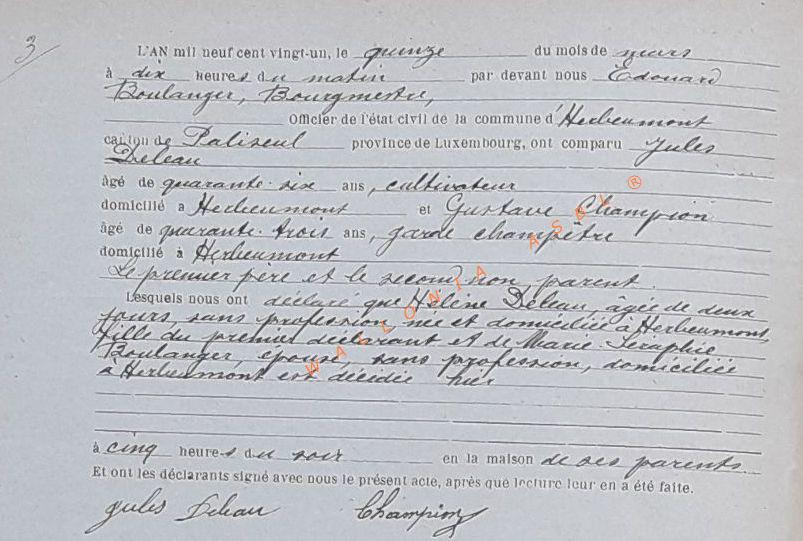 3
L'AN mil neuf cent vingt-un, le quinze du mois de mars
à dix heures du matin par devant nous Edouard
Boulanger, Bourgmestre,
Officier de l'état civil de la commune d'Herbeumont
canton de Paliseul province de Luxembourg, ont comparu Jules
Deleau
âgé de quarante-six ans, cultivateur
domicilié a Herbeumont et Gustave Champion
âgé de quarante-trois ans, garde champêtre
domicilié à Herbeumont
Le premier père et le second non parent.
Lesquels nous ont déclaré que Hélène Deleau, âgée de deux
jours sans profession, née et domiciliée à Herbeumont,
fille du premier déclarant et de Marie Seraphie
Boulanger, épouse, sans profession, domiciliée
à Herbeumont est décédée hier
à cinq heures du soir en la maison de ses parents.
Et ont les déclarants signé avec nous le présent acte, après que lecture leur en a été faite.
Jules Deleau Champion
WALLONIA ASBL ®